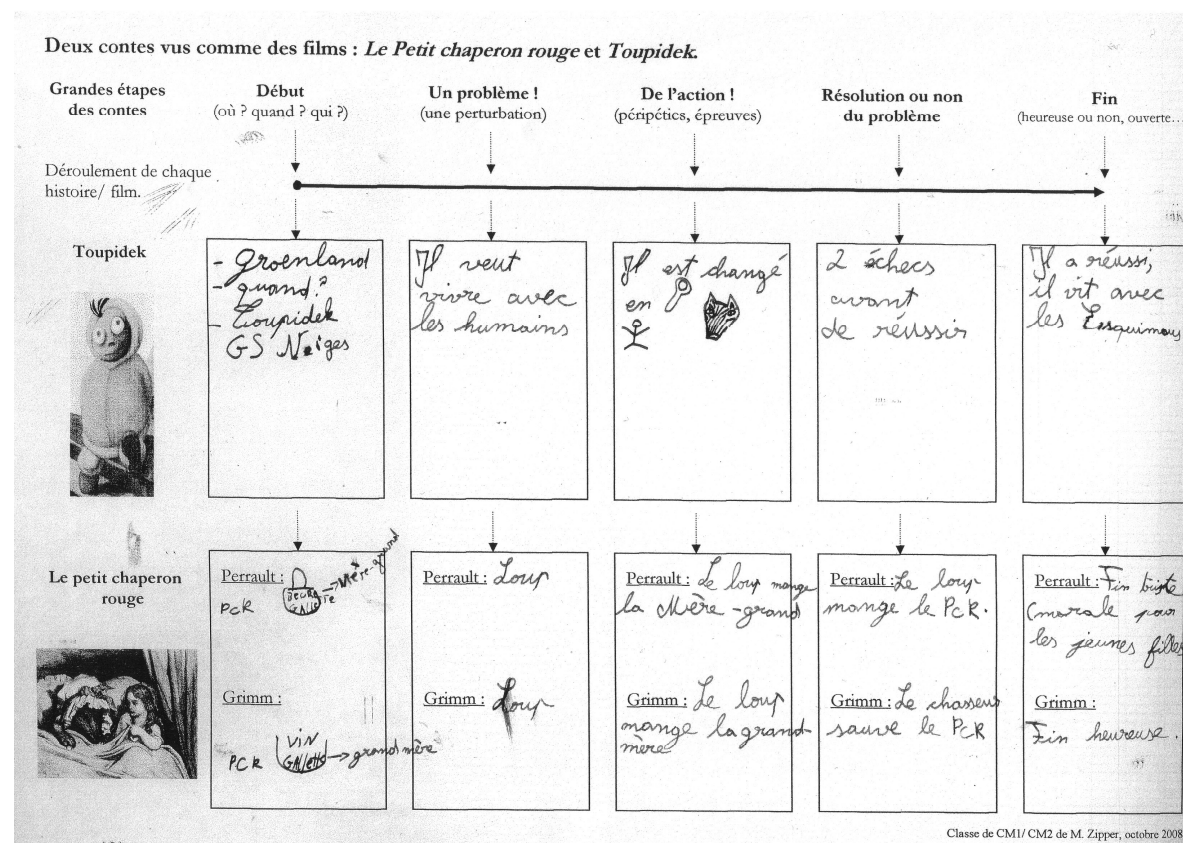 Deux contes vus comme des films : Le Petit chaperon rouge et Toupidek.
Grandes étapes
des contes
Début
(où ? quand ? qui ?)
Un problème !
(une perturbation)
De l'action !
(péripéties, épreuves)
Résolution ou non
du problème
Fin
(heureuse ou non, ouverte…
Déroulement de chaque
histoire/ film.
Toupidek
- Groenland
- quand ?
- Toupidek
GS Neiges
Il veut
vivre avec
les humains
Il est changé
en
2 échecs
avant
de réussir
Il a réussi,
il vit avec
les Esquimaux
Le petit chaperon
rouge
Perrault :
PCR
BEURRE
GALETTE
→ Mère-grand
Grimm :
PCR
VIN
GALETTE
→ grand mère
Perrault : Loup
Grimm : Loup
Perrault : Le loup mange
la Mère-grand
Grimm : Le loup
mange la grand-
mère
Perrault : Le loup
mange le PCR.
Grimm : Le chasseur
sauve le PCR
Perrault : Fin triste
(morale pour
les jeunes filles
Grimm :
Fin heureuse.
Classe de CM1/ CM2 de M. Zipper, octobre 2008